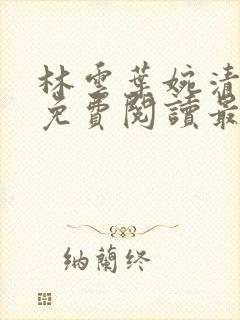 林雲葉婉清
免費閱讀最
納蘭终